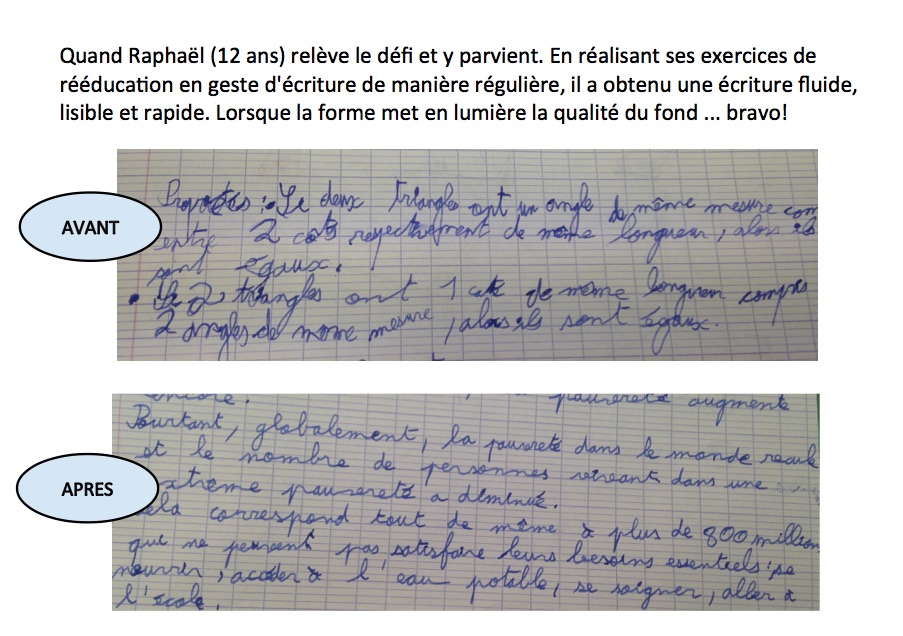 Quand Raphaël (12 ans) relève le défi et y parvient. En réalisant ses exercices de
rééducation en geste d'écriture de manière régulière, il a obtenu une écriture fluide,
lisible et rapide. Lorsque la forme met en lumière la qualité du fond ... bravo!
AVANT
deux triangles ont un angle de même mesure com
entre 2 respectivement de même longueur, alors ils
sont égaux.
2 triangles ont 1 de même longueur compris
2 angles de mome mesure, alors ils sont égaux.
APRES
encore. augmente
Pourtant, globalement, la pauvreté dans le monde recule
et le nombre de personnes vivant dans une
xtrême pauvreté a diminué.
ela correspond tout de même à plus de 800 million
qui ne peuvent pas satisfaire leurs besoins essentiels : se
nourrir, accéder à l'eau potable, se soigner, aller à
l'école.